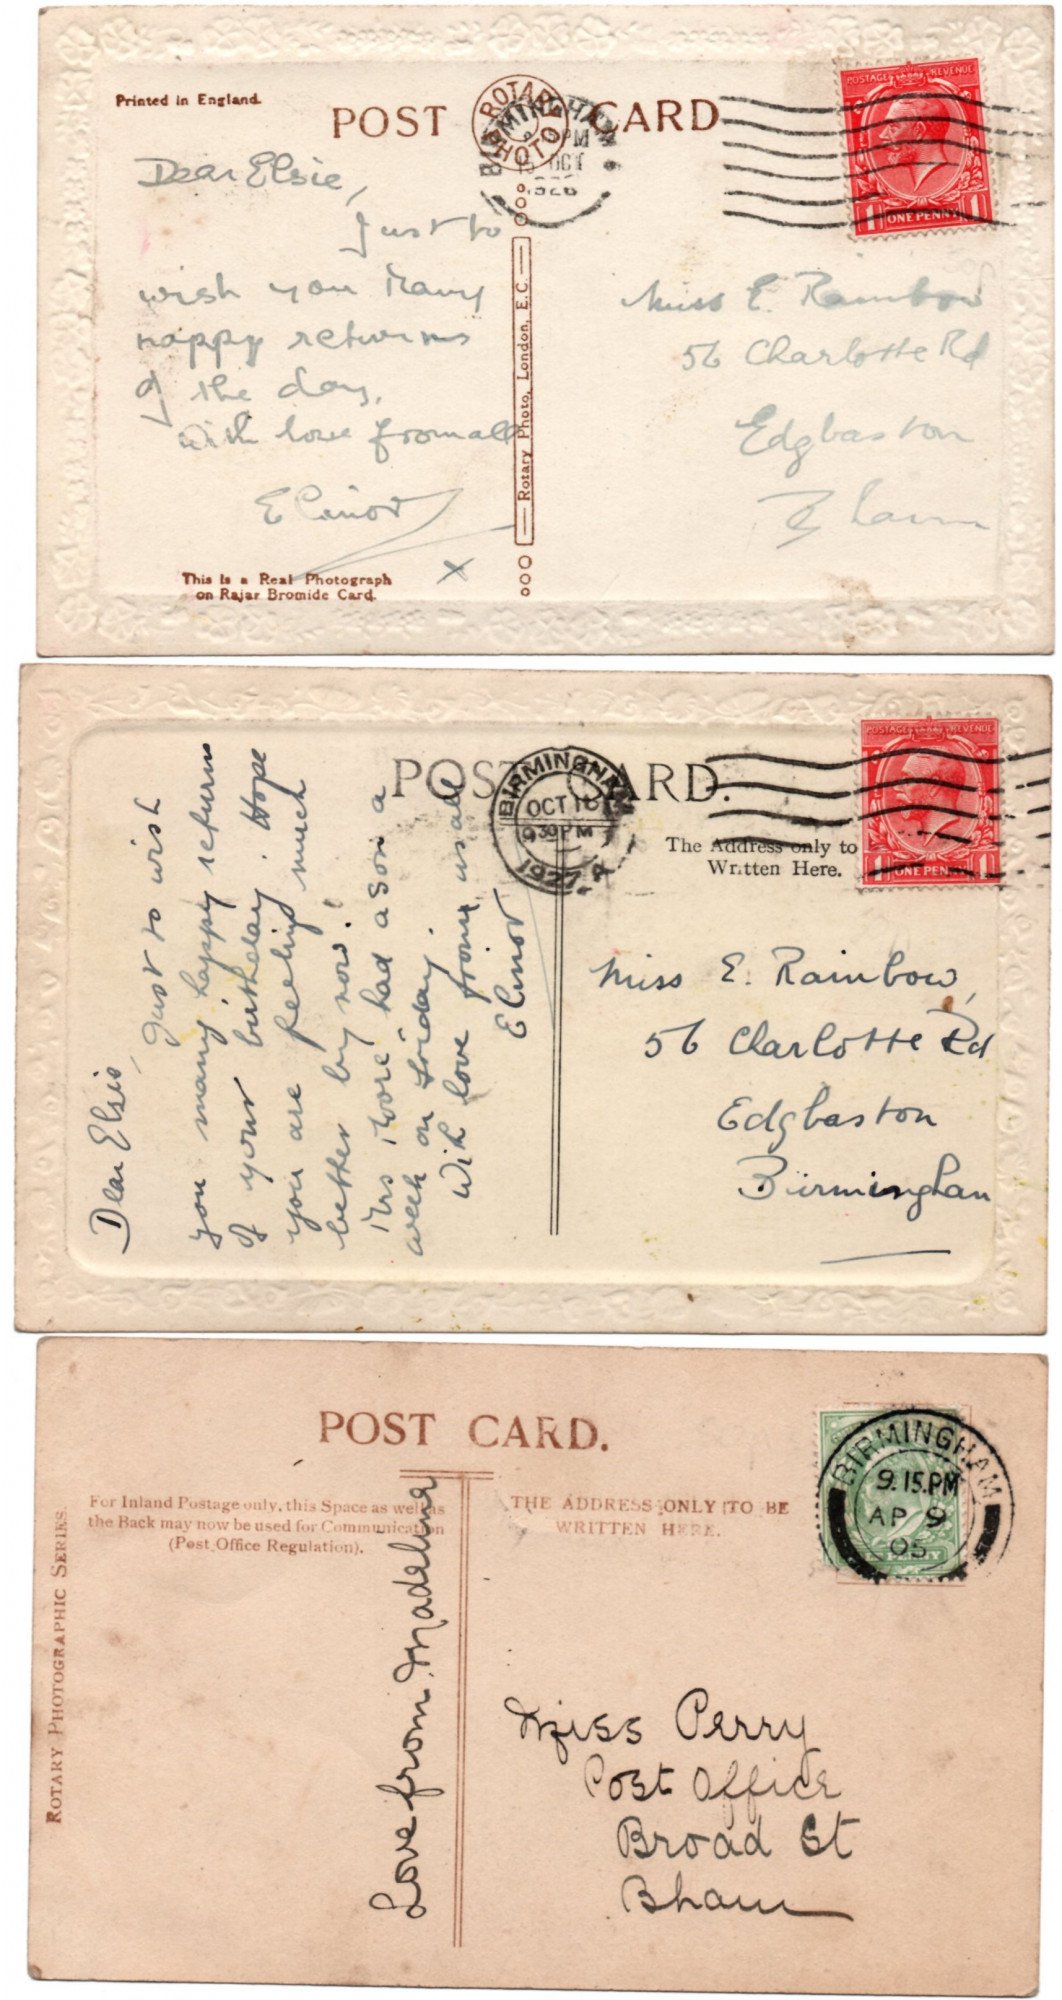 Printed in England.
POST CARD
ROTARY PHOTO
BIRMINGHAM
PM
OCT
1926
POSTAGE REVENUE
1 ONE PENNY 1
Dear Elsie,
Just to
wish you Many
happy returns
of the day,
with love from all
Elinor
x
This is a Real Photograph
on Rajar Bromide Card.
Rotary Photo, London, E.C.
Miss E. Rainbow
56 Charlotte Rd
Edgbaston
B'ham
POST CARD.
BIRMINGHAM
OCT 18
9 30 PM
1927
POSTAGE REVENUE
1 ONE PENNY 1
The Address only to
Written Here.
Dear Elsie,
Just to wish
you many happy returns
of your birthday. Hope
you are feeling much
better by now.
Mrs Moore had a son a
week on Friday.
With love from us all
Elinor
Miss E. Rainbow,
56 Charlotte Rd
Edgbaston
Birmingham
POST CARD.
For Inland Postage only, this Space as well as
the Back may now be used for Communication
(Post Office Regulation).
THE ADDRESS ONLY TO BE
WRITTEN HERE.
ROTARY PHOTOGRAPHIC SERIES
BIRMINGHAM
9.15.PM
AP 9
05
Love from Madeline
Miss Perry
Post Office
Broad St
Bham